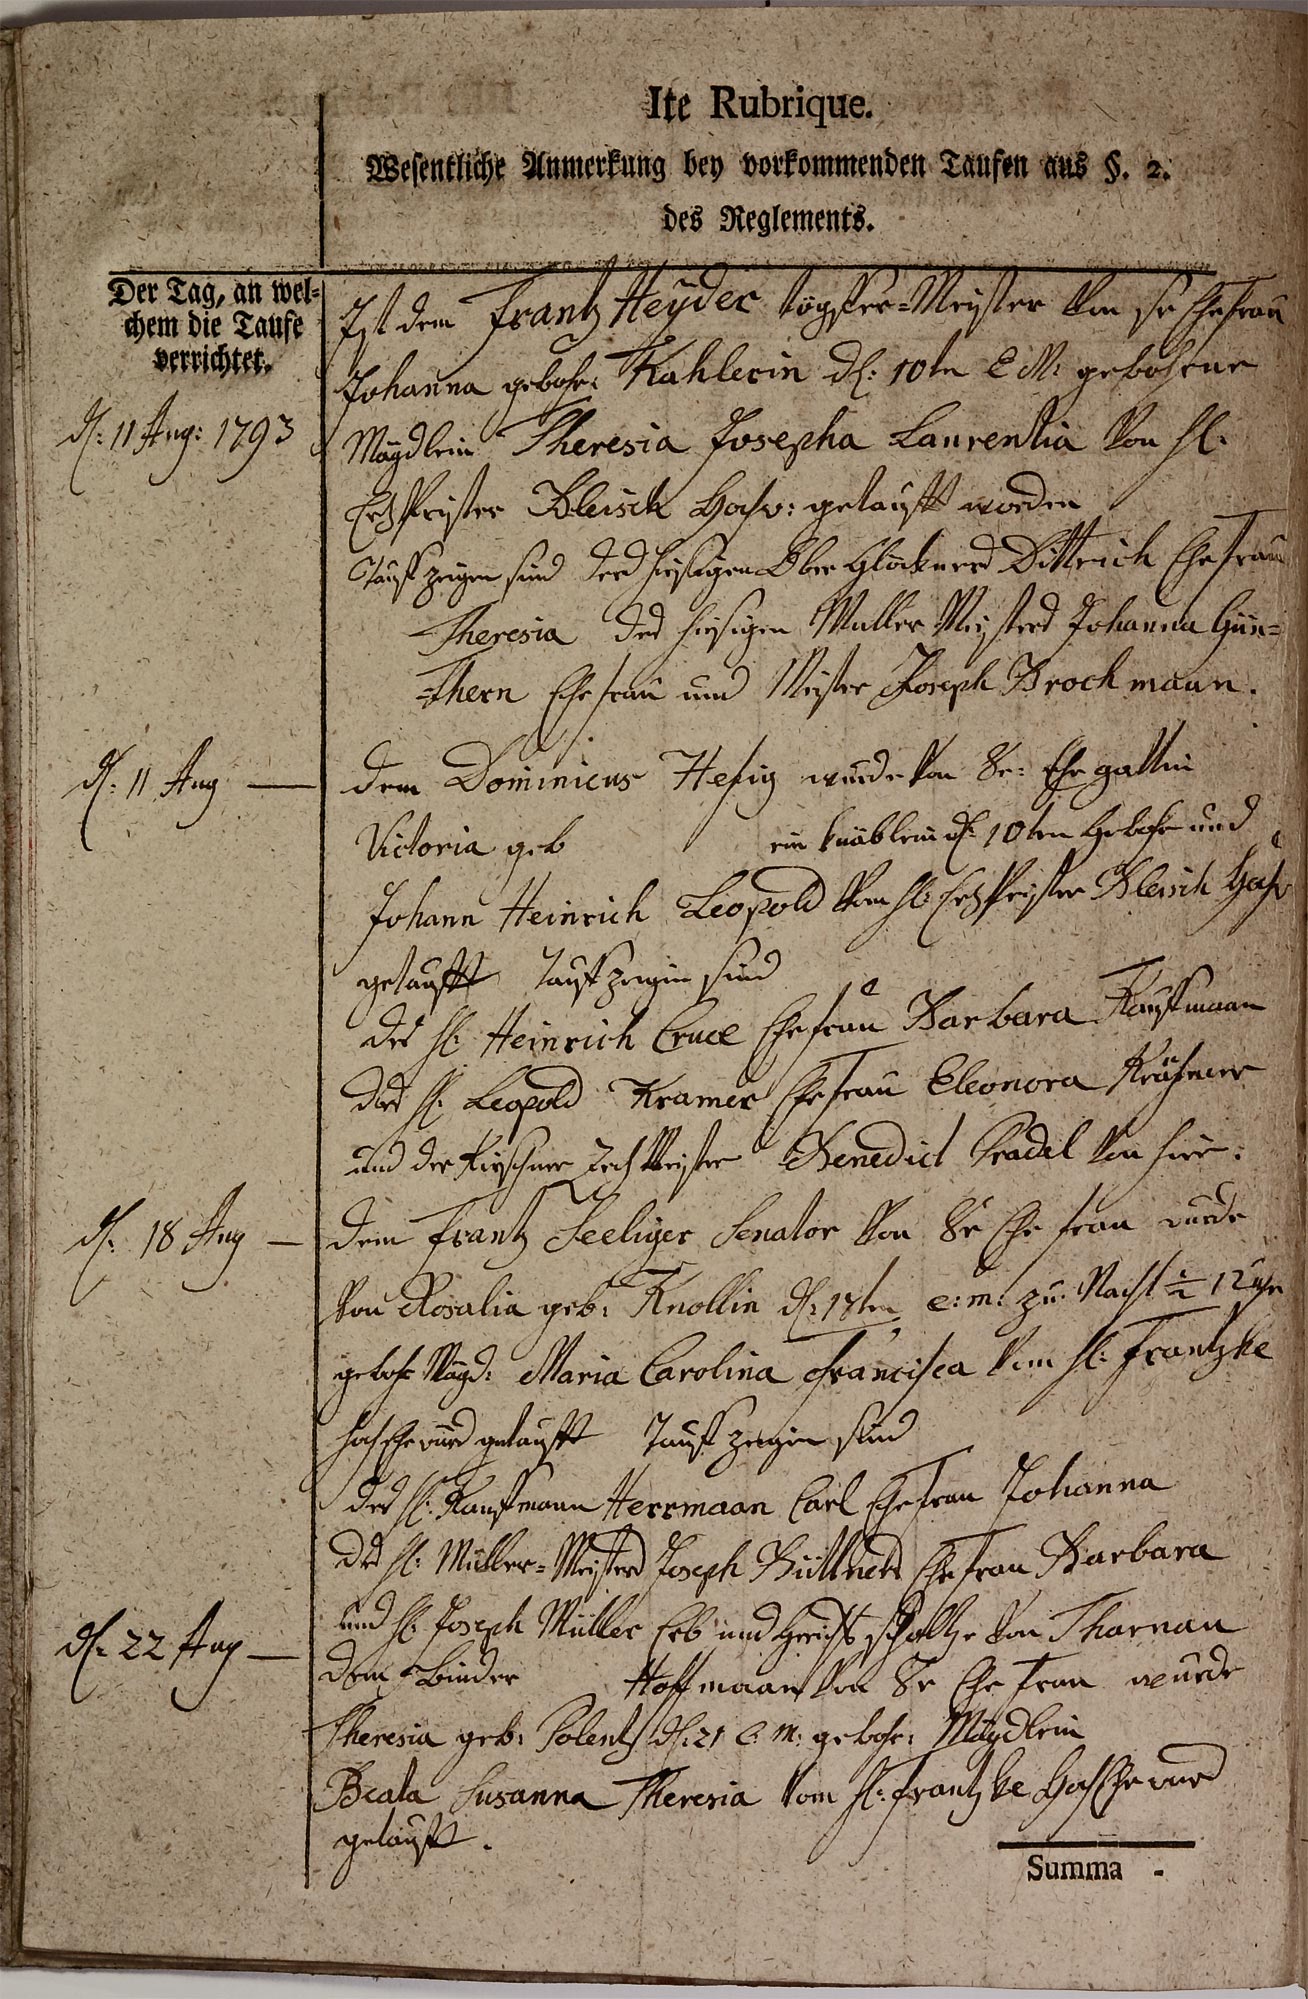 Ite Rubrique.
Wesentliche Anmerkung bey vorkommenden Taufen aus §. 2.
des Reglements.
Der Tag, an wel-
chem die Taufe
verrichtet.
d: 11 Aug: 1793
Ist dem Frantz Heyder töpffer-Meister von sr Ehefrau
Johanna gebohr: Kahlerin d: 10ten E M: gebohrne
Mägdlein Theresia Josepha Laurentia von H:
ErtzPrister Bleisch Hochw: getaufft worden
Tauffzeugen sind des hiesigen Ober Glöckners Dittrich Ehefrau
Theresia des hiesigen Muller Meisters Johanna Gün-
-thern Ehefrau und Meister Joseph Brochmann.
d: 11 Aug
dem Dominicus Hesig wurde von Sr: Ehegattin
Victoria geb ein knäblein d: 10ten Gebohr und
Johann Heinrich Leopold vom H: ErtzPrister Bleisch Hochw
getaufft Tauffzeugen sind
des H: Heinrich Cruce Ehefrau Barbara Kauffmann
des H: Leopold Kramer Ehefrau Eleonora
und der Kirschner ZechMeister Benedict Pradel von hier:
d: 18 Aug
dem Frantz Seeliger Senator von Sr Ehe frau wurde
von Rosalia geb: Knollin d: 18ten e: m: zu Nacht ½ 12 Uhr
gebohr Mägd: Maria Carolina Francisca vom H: Frantzke
HochEhrwürd getaufft Tauff zeugen sind
des H: Kauffmann Herrmann Carl Ehefrau Johanna
des H: Müller-Meisters Joseph Büttners Ehefrau Barbara
und H: Joseph Müller Erb und Gerichts scholtze von Tharnau
d: 22 Aug
dem Binder Hoffmann von Sr Ehe frau wurde
Theresia geb: Polentz d: 21 e: m: gebohr: Mägdlein
Beata Susanna Theresia vom H: Frantzke HochEhrwurd
getaufft.
Summa -